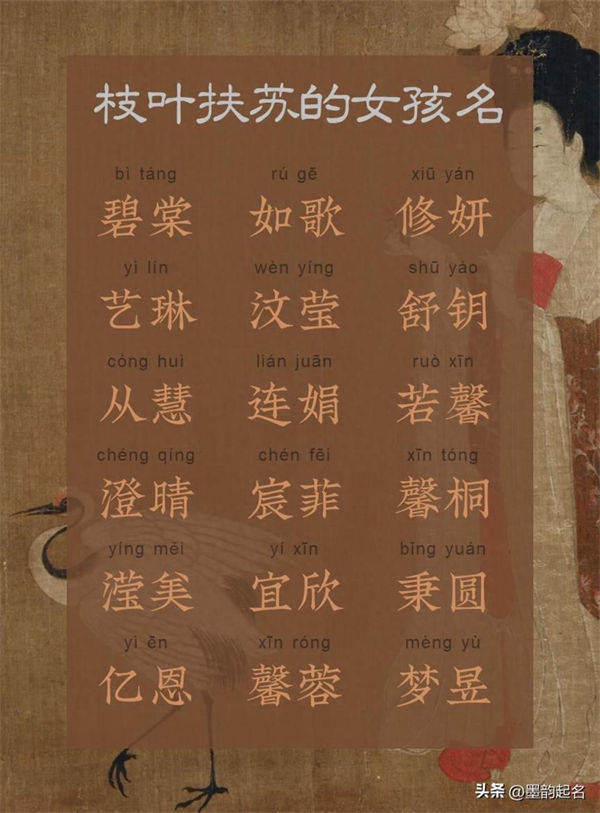 枝叶扶苏的女孩名
bì táng rú gē xiū yán
碧棠 如歌 修妍
yì lín wèn yíng shū yáo
艺琳 汶莹 舒钥
cóng huì lián juān ruò xīn
从慧 连娟 若馨
chéng qíng chén fēi xīn tóng
澄晴 宸菲 馨桐
yíng měi yí xīn bǐng yuán
滢美 宜欣 秉圆
yì ēn xīn róng mèng yù
亿恩 馨蓉 梦昱
头条 @墨韵起名